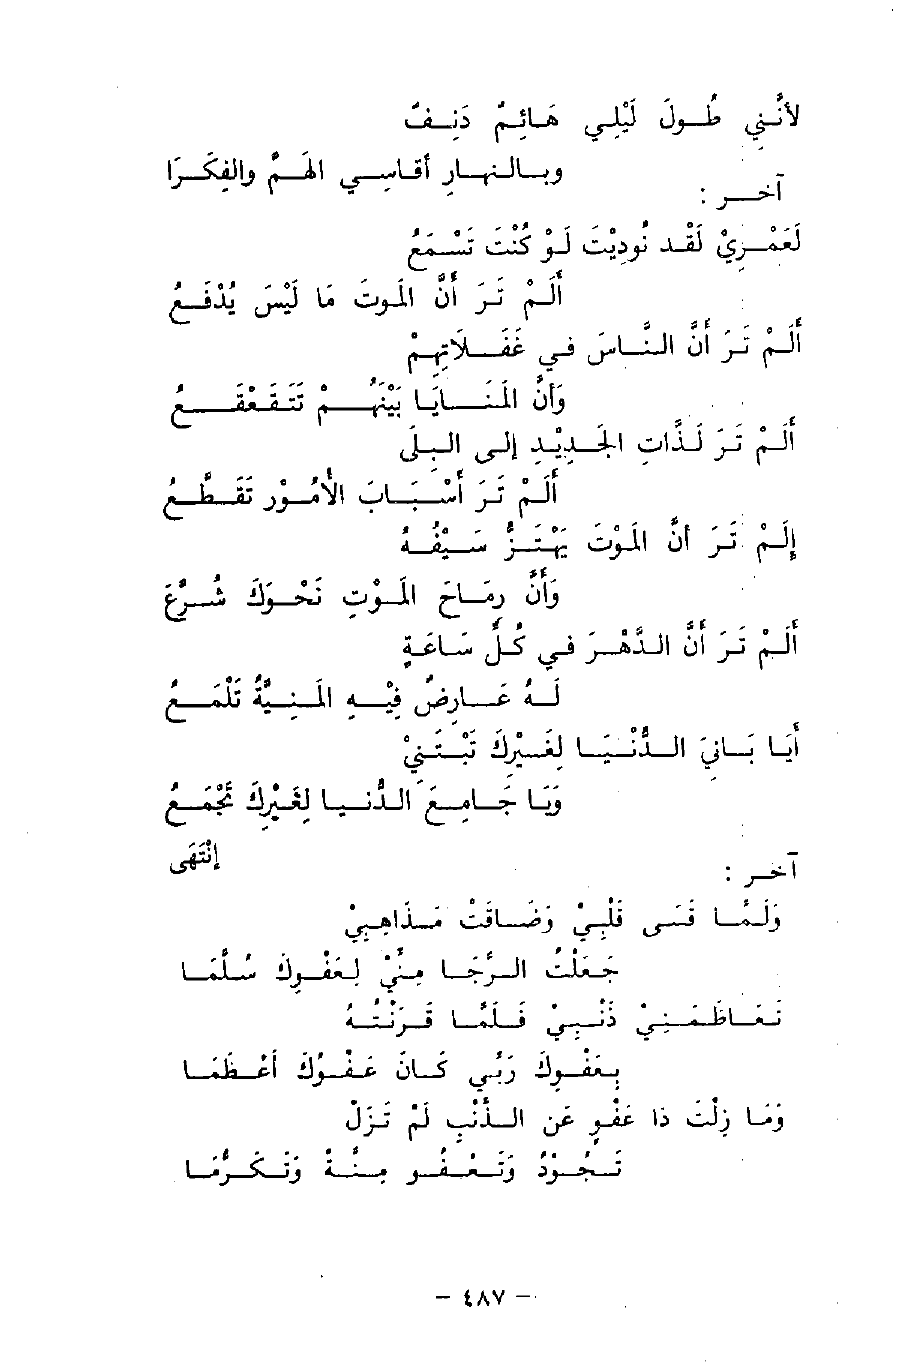 لأنَّني طُولَ لَيْلِي هَائِمٌ دَنِفٌ
وبالنهارِ أقاسِي الهَمَّ والفِكَرَا
آخر :
لَعَمْرِيْ لَقَد نُودِيْتَ لَوْ كُنْتَ تَسْمَعُ
أَلَمْ تَرَ أَنَّ المَوتَ مَا لَيْسَ يُدْفَعُ
أَلَمْ تَرَ أَنَّ النَّاسَ في غَفَلَاتِهِمْ
وَأنَّ المَنَايَا بَيْنَهُمْ تَتَقَعْقَعُ
أَلَمْ تَرَ لَذَّاتِ الجَدِيْدِ إلى البِلَى
أَلَمْ تَرَ أَسْبَابَ الأُمُوْرِ تَقَطَّعُ
إلَمْ تَرَ أنَّ المَوْتَ يَهْتَزُّ سَيْفُهُ
وَأَنَّ رِمَاحَ المَوْتِ نَحْوَكَ شُرَّعَ
أَلَمْ تَرَ أَنَّ الدَّهْرَ في كُلِّ سَاعَةٍ
لَهُ عَارِضٌ فِيْهِ المَنِيَّةُ تَلْمَعُ
أَيَا بَانِيَ الدُّنْيَا لِغَيْرِكَ تَبْتَنِيْ
وَيَا جَامِعَ الدُّنيا لِغَيْرِكَ تَجْمَعُ
إنْتَهَى
آخر :
وَلَمَّا قَسَى قَلْبِيْ وَضَاقَتْ مَذَاهِبِيْ
جَعَلْتُ الرَّجَا مِنِّيْ لِعَفْوِكَ سُلَّمَا
تَعَاظَمَنِيْ ذَنْبِيْ فَلَمَّا قَرَنْتُهُ
بِعَفْوِكَ رَبِّي كَانَ عَفْوُكَ أَعْظَمَا
وَمَا زِلْتَ ذا عَفْوٍ عَنِ الذَّنْبِ لَمْ تَزَلْ
تَجُوْدُ وَتَعْفُو مِنَّةً وَتَكَرُّمَا
- ٤٨٧ -